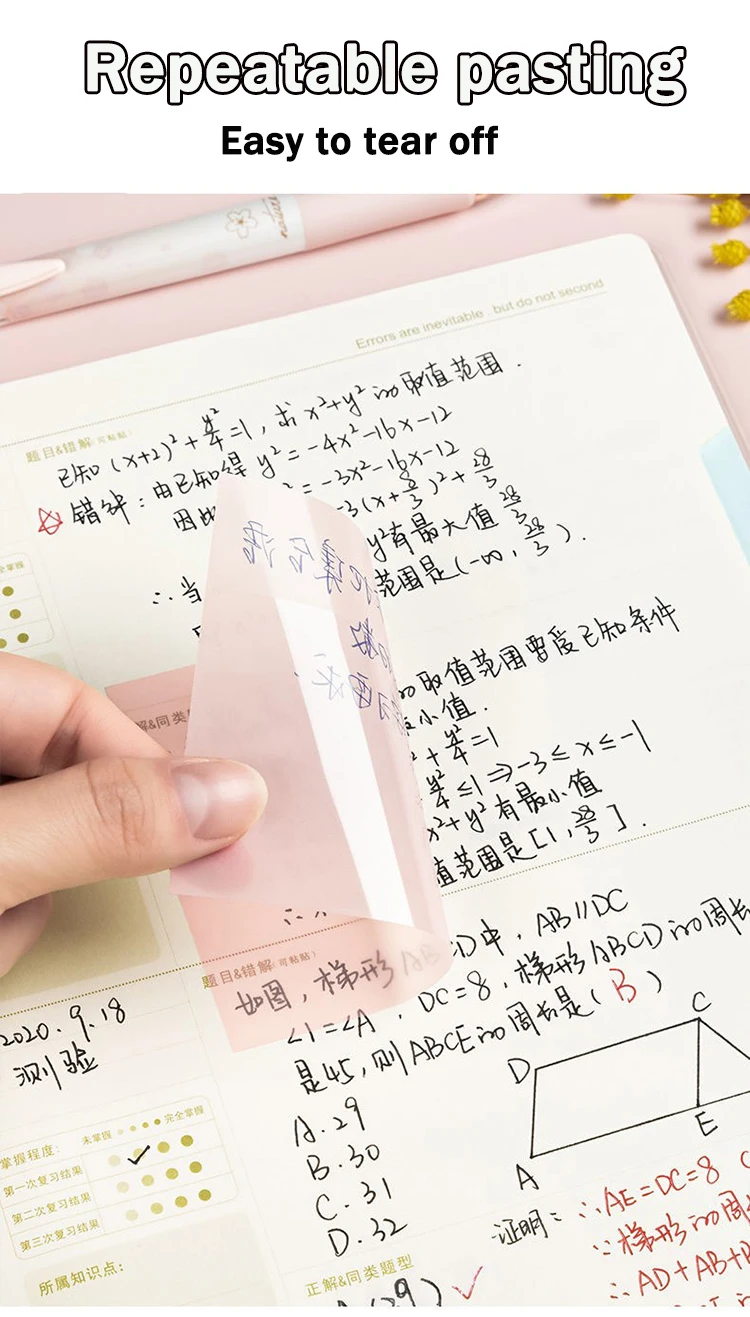 Repeatable pasting
Easy to tear off
Errors are inevitable but do not second
题目&错解(可粘贴)
已知 (x+2)²+y²/4=1, 求 x²+y² 的取值范围.
错解: 由已知得 y²=-4x²-16x-12
因此 ²=-3x²-16x-12
-3(x+8/3)²+28/3
∴当 y²有最大值28/3
范围是(-∞, 28/3).
的取值范围要受已知条件
小值.
²+y²/4=1
y²/4≤1⇒-3≤x≤-1
x²+y²有最小值
值范围是[1, 28/3].
解&同类
题目&错解(可粘贴)
如图, 梯形AB CD中, AB∥DC
∠1=∠A, DC=8, 梯形ABCD的周长
是45, 则ABCE的周长是(B)
A.29
B.30
C.31
D.32
D
C
A
E
2020.9.18
测验
掌握程度: 未掌握 完全掌握
第一次复习结果
第二次复习结果
第三次复习结果
所属知识点:
证明:
∴AE=DC=8
∵梯形的周
∴AD+AB+
正解&同类题型